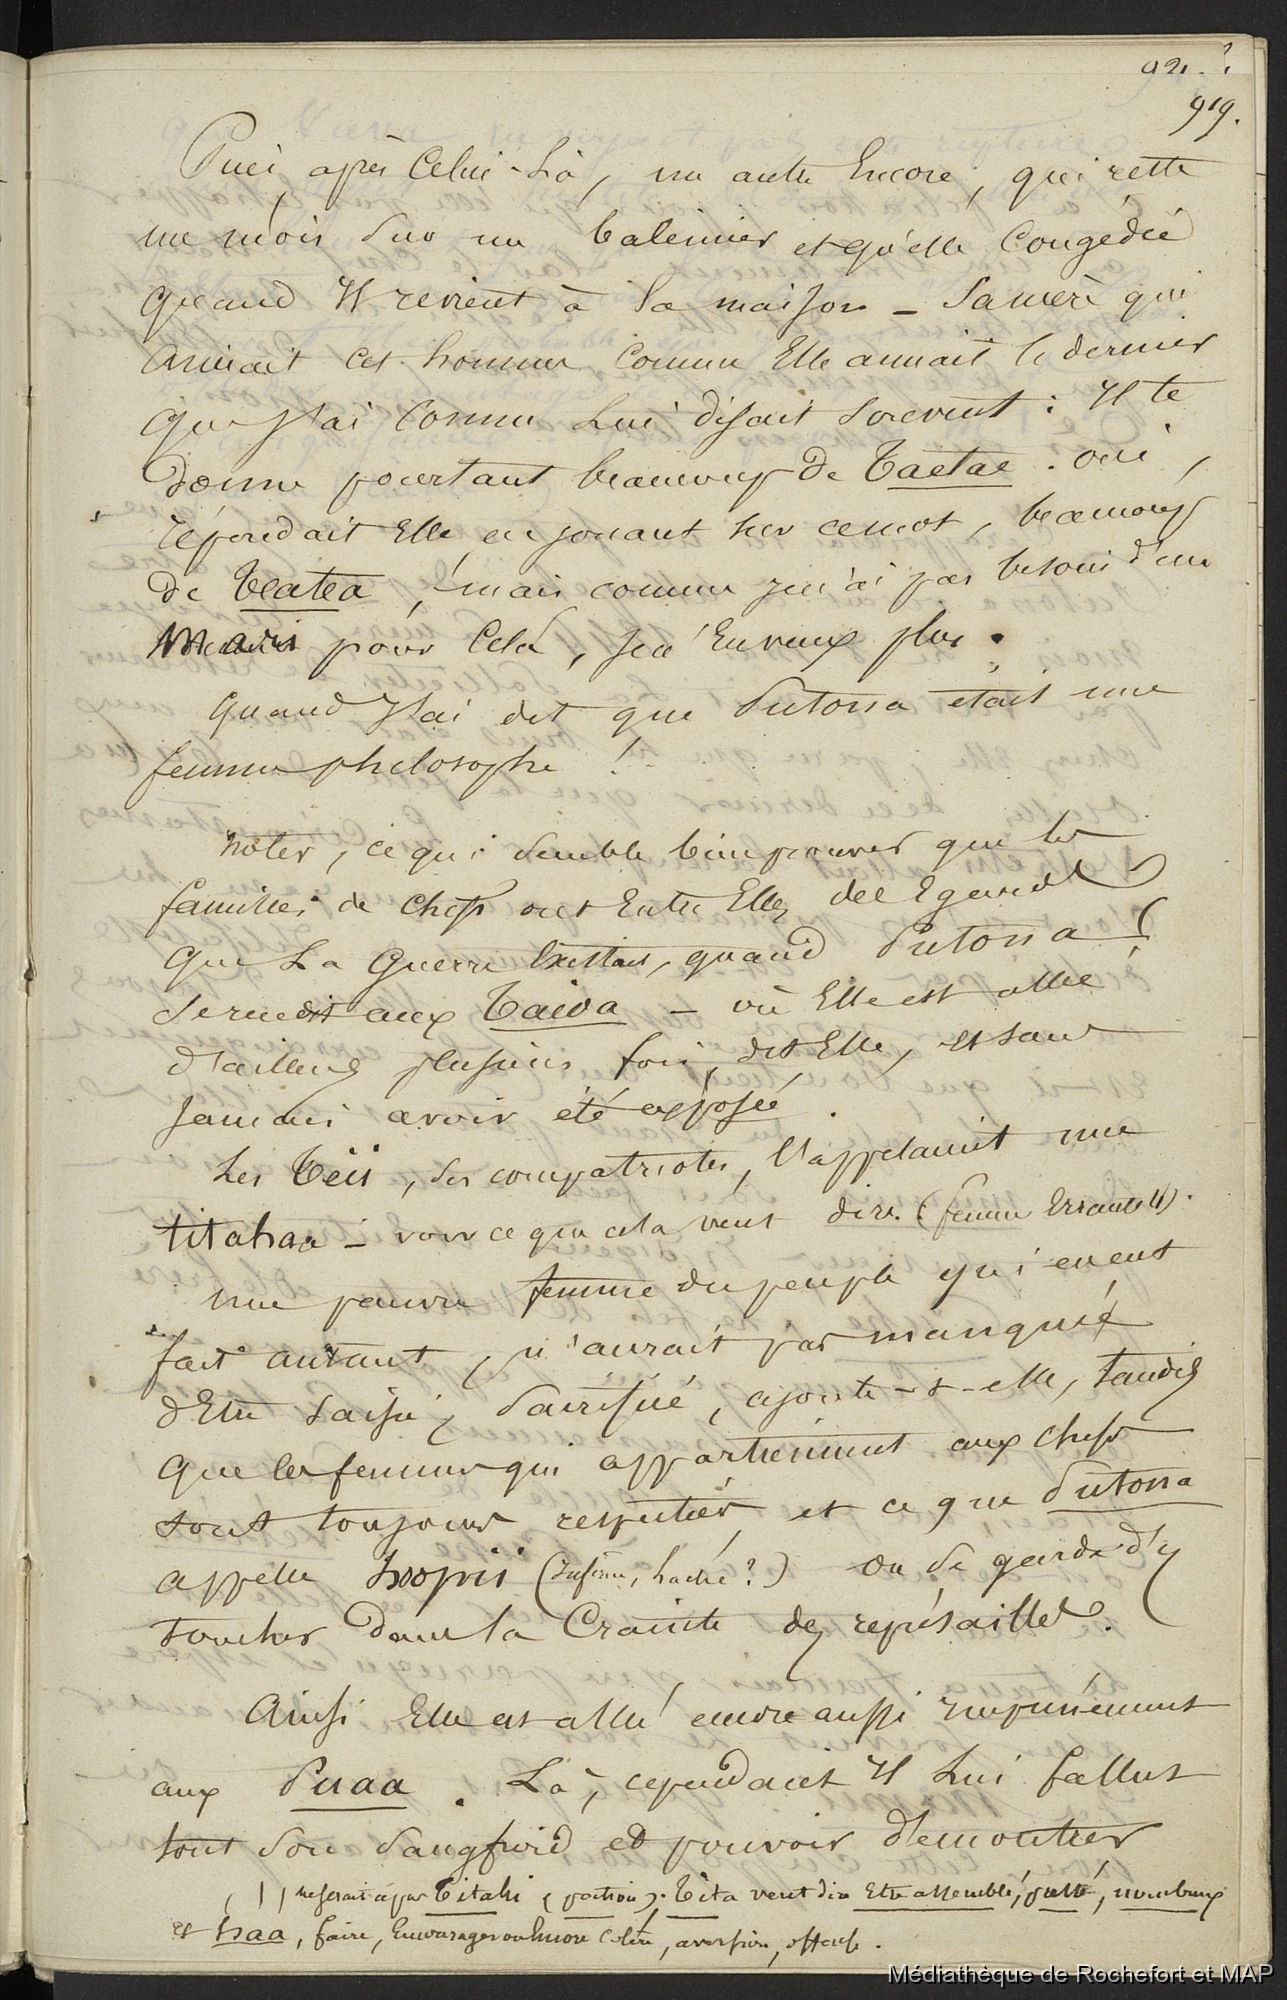 921.?
919.
Puis, après Celui-Là, un autre Encore, qui reste
un mois sur un baleinier et qu'elle Congédié
quand Il revient à la maison _ Sa mère qui
aimait cet homme Comme Elle aimait le dernier
que J'ai Connu Lui disait souvent : Il te
donne pourtant beaucoup de Taetae . oui,
répondait Elle, en jouant sur ce mot, beaucoup
de Teatea, mais comme je n'ai pas besoin d'un
Mari pour Celà, je n'En veux plus.
Quand J'ai dit que Putona était une
femme philosophe !
noter, ce qui semble bien prouver que les
familles de chefs ont Entre Elles des Egards
que La Guerre Existait, quand Putona
se rendit aux Taioa _ où Elle est allée
d'ailleurs plusieurs fois, dit Elle, et sans
Jamais avoir été exposée.
Les Teii, ses compatriotes, l'appelaient une
titahaa _ voir ce que cela veut dire. (femme Errante (1).
une pauvre femme du peuple qui en eut
fait autant, n'aurait pas manqué
d'Etre Saisie, Sacrifiée, ajoute-t-elle, tandis
que les femmes qui appartiennent aux chefs
sont toujours respectées et ce que Putona
appelle hoopii (, haché ?) on se garde d'y
toucher dans la Crainte des représailles.
Ainsi Elle est allée encore aussi impunément
aux Puaa. Là, cependant Il Lui fallut
tout Son Sangfroid et pouvoir démontrer
(1) ne serait-ce pas Titahi (portion) : Tita veut dire Etre assemblé, , nombreux
et haa, faire, Encourager ou Encore Colère, aversion, offense.
Médiathèque de Rochefort et MAP